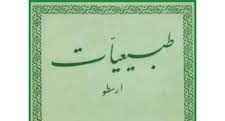 طبیعیّات
ارسطو